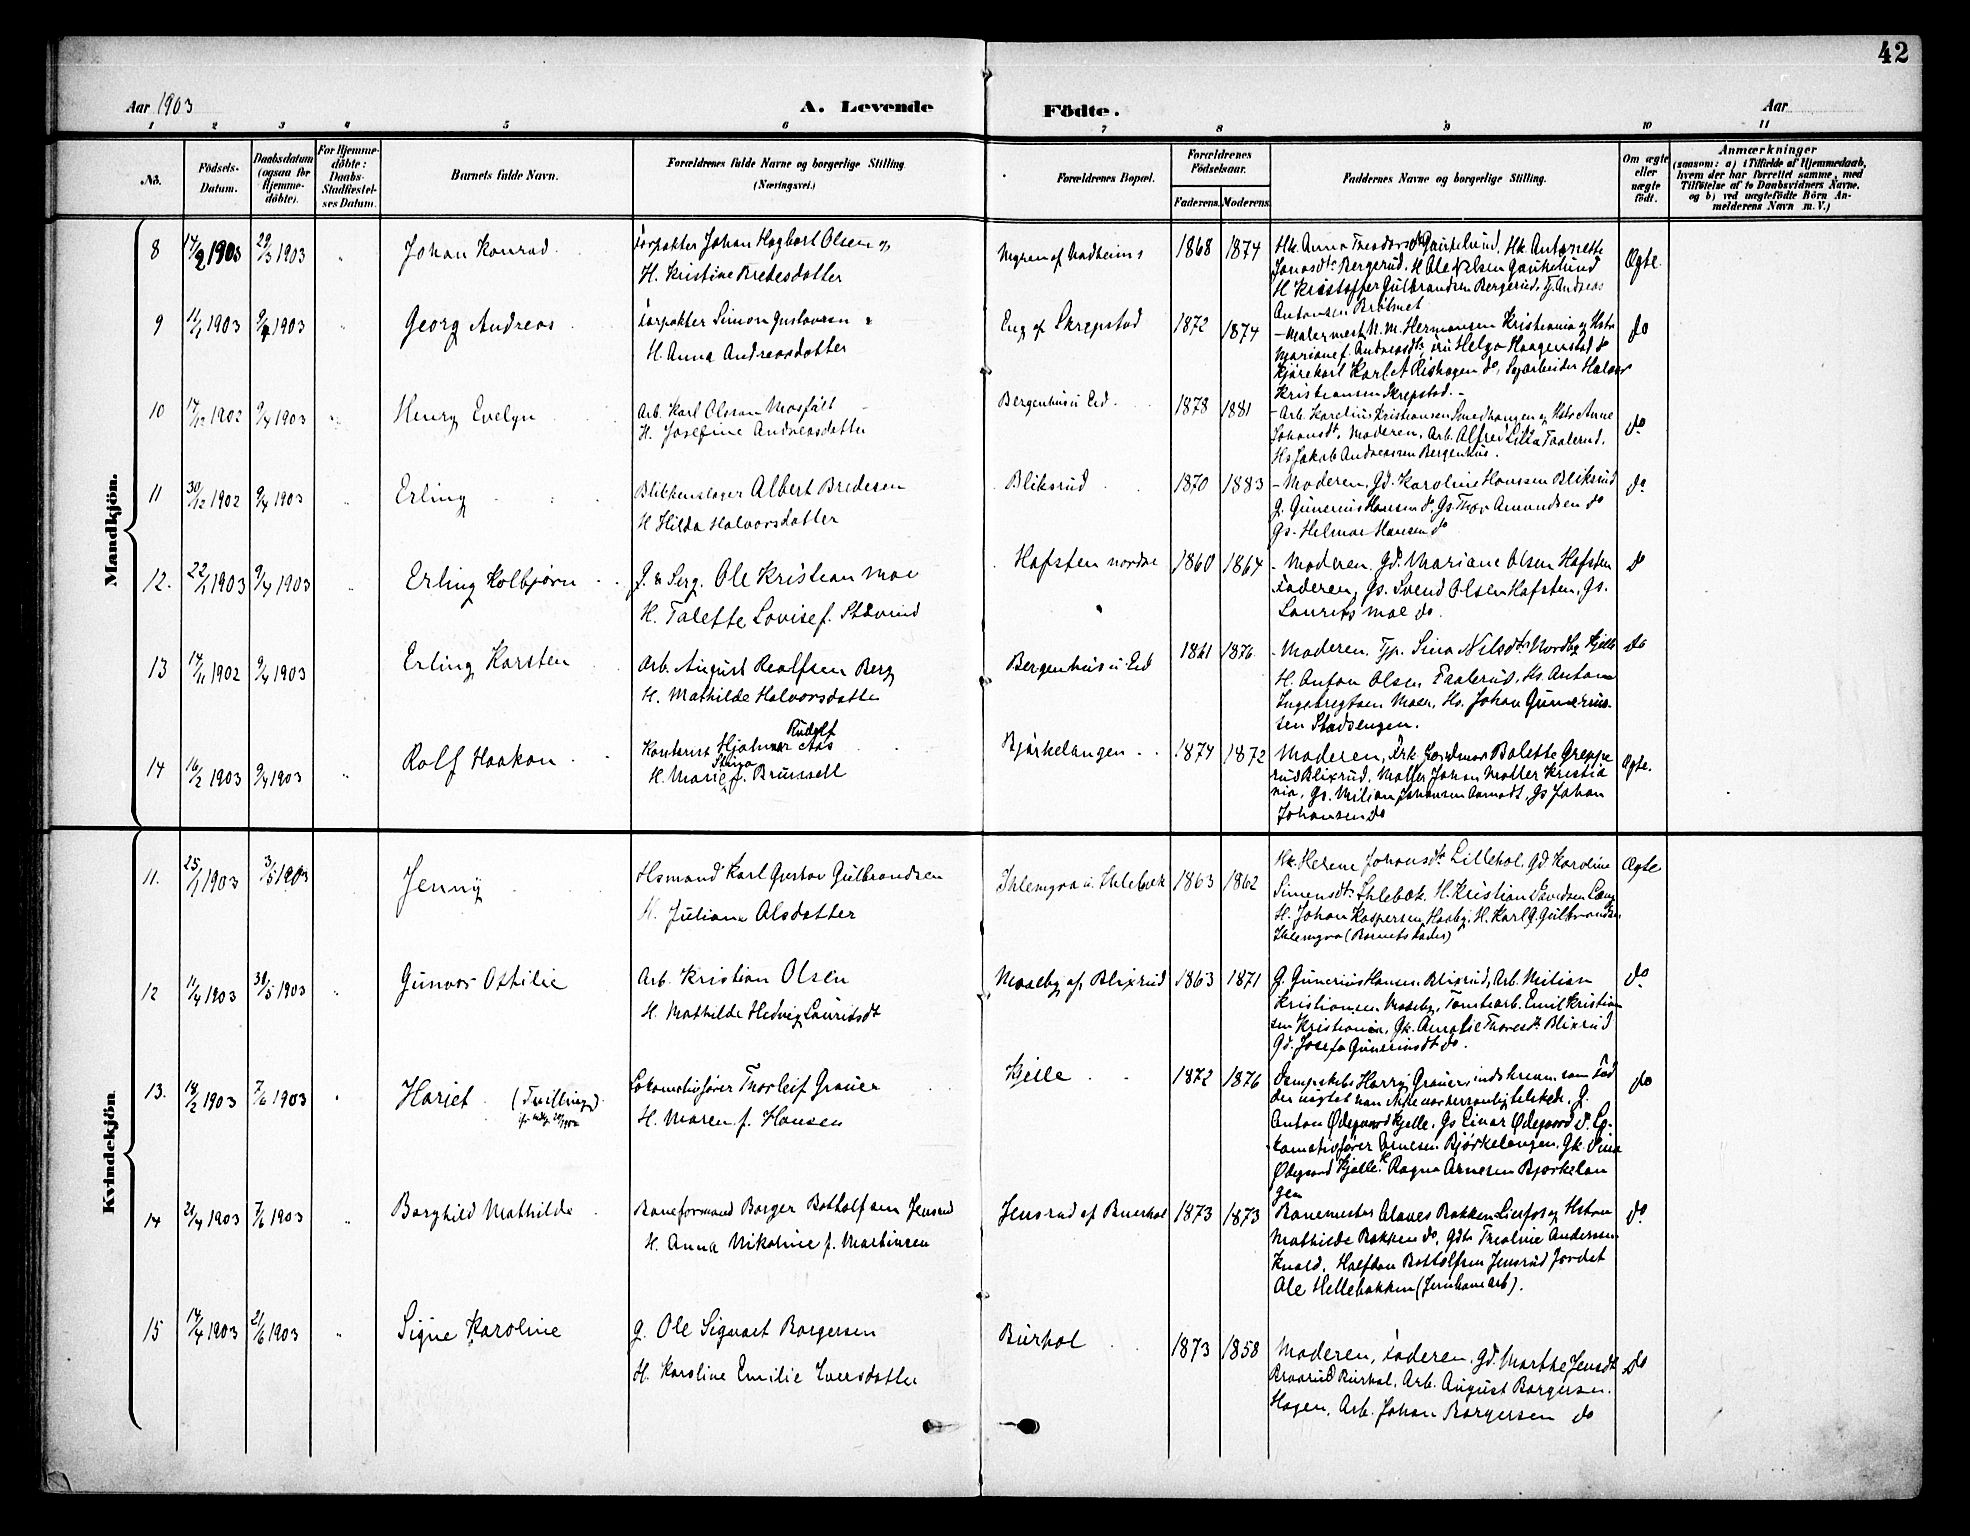 42
Aar 1903
A. Levende
Fødte.
Aar
1 2 3 4 5 6 7 8 9 10 11
No.
Fødsels-Datum.
Daabsdatum (ogsaa for Hjemmedøbte).
For Hjemmedøbte: Daabs-Stadfæstelses Datum.
Barnets fulde Navn.
Forældrenes fulde Navne og borgerlige Stilling. (Næringsvei.)
Forældrenes Bopæl.
Forældrenes Fødselsaar.
Faderens. Moderens.
Faddernes Navne og borgerlige Stilling.
Om ægte eller uægte født.
Anmærkninger
(saasom: a) i Tilfælde af Hjemmedaab, hvem der har forrettet samme, med Tilføielse af to Daabsvidners Navne, og b) ved uægtefødte Børn Anmelderens Navn m. V.)
Mandkjön.
8 14/2 1903 29/3 1903 " Johan Konrad
Forpakter Johan Hagbart Olsen og
H. Kristine Bredesdatter
1868 1874
Hk. Anna
Jonasdt. Bergerud. H. Ole Nilsen Gaukelund
H Kristoffer Gulbrandsen Bergerud, G. Andreas
Antonsen
Ægte
9 11/1 1903 9/4 1903 " Georg Andreas
Forpakter Simon Gustavsen
H. Anna Andreasdatter
Eng af Skrepstad 1872 1874
Malermest. M. Hermansen Kristiania og Hstr
Mariane f. Andreasdt., Helga Haagenstad do
Kjørekarl Karl A Rishagen do, Sagarbeider Halvor
Kristiansen Skrepstad.
do
10 14/12 1902 9/4 1903 " Henry Evelyn
Arb. Karl Olsson Mosfält
H. Josefine Andreasdatter
Bergenhus u Eid 1878 1881
Arb. Karelius Kristiansen Smedhaugen og Hstr Anne
Johansdt, Moderen, Arb. Alfred Taalerud,
Hs. Jakob Andreassen Bergenhus.
do
11 30/12 1902 9/4 1903 " Erling
Blikkenslager Albert Bredesen
H Hilda Halvorsdatter
Bliksrud 1870 1883
Moderen, Gd. Karoline Hanssen Bliksrud
G. Gunerius Hansen do, Gs. Thor Amundsen do
Gs. Helmar Hansen do
do
12. 22/1 1903 9/4 1903 " Erling Kolbjørn
G. & Serg. Ole Kristian Moe
H. Talette Lovise f.
Hafsten nordre 1860 1864
Moderen, Gd. Mariane Olsen Hafsten
Faderen, Gs. Svend Olsen Hafsten, Gs.
Laurits Moe do.
do
13 14/11 1902 9/4 1903 Erling Karsten
Arb. August Rolfsen Berg
H. Mathilde Halvorsdatter
Bergenhus u Eid 1861 1876
Moderen, Tjp. Sina Nilsdt. Nordby Kjelle
H. Anton Olsen Taalerud, Hs. Anton
Ingebregtsen Moen, Hs. Johan Gunerius-
sen Stadsengen.
do
14 16/2 1903 9/4 1903 " Rolf Haakon
Kontorist Hjalmar Rudolf Aas
H. Marie f. Brunsell
Bjørkelangen 1874 1872
Moderen, Frk. Jordmor Bolette Greppe
rud Blixrud, Møller Johan Møller Kristia
nia, Gs. Milian Johansen Aamodt, Gs Johan
Johansen do
Ægte.
Kvindekjön
11. 25/1 1903 3/5 1903 Jenny
Hsmand Karl Gustav Gulbrandsen
H. Juliane Olsdatter
Ihlemyra u. Ihlebæk 1863 1862
Hk. Helene Johansdt. Lillehol, Gd Karoline
Simensdt. Ihlebæk. H. Kristian Davidsen
H. Johan Kaspersen Haaby. H. Karl G. Gulbrandsen
Ihlemyra (Barnets Fader)
Ægte
12 11/4 1903 30/5 1903 " Gunvor Othilie
Arb. Kristian Olsen
H. Mathilde Hedvig Lauridsdt
Moseby af Blixrud 1863 1871
G. Gunerius Hansen Blixrud, Arb. Milian
Kristiansen Moseby, Tomtearb. Emil Kristian
sen Kristiania, Gk. Amalie Thoresdt. Blixrud
Gd. Josefa Guneriusdt do.
do
13. 14/2 1903 7/6 1903 " Hariet (Tvilling)
Lokomotivfører Thorleif Graüer
H. Maren f. Hansen
Kjelle 1872 1876
Dampskibs Harry Graüer indskreven som Fad
der uagtet han ikke var personlig tilstede. G.
Anton Ødegaard Kjelle, Gs Einar Ødegaard do. Lo-
komotivfører Arnesen Bjørkelangen, Gk. Dina
Ødegaard Kjelle. Fr. Ragna Arnesen Bjørkelan
gen
do
14 21/4 1903 7/6 1903 " Borghild Mathilde
Baneformand Borger Bottolfsen Jensrud
H. Anna Nikoline f. Martinsen
Jensrud af Buerhol 1873 1873
Banemester Olaves Bakken Lierfos og Hstru
Mathilde Bakken do, Gdtr Tholine Andersen
Knold, Halfdan Bottolfsen Jensrud Jordet
Ole Hellebakken (Jernbanearb).
do
15 14/4 1903 21/6 1903 " Signe Karoline
G. Ole Sigvart Borgersen
H. Karoline Emilie Iversdatter
Burhol 1873 1858
Moderen, Faderen. Gd. Marthe Jensdt
Braarud Burhol, Arb. August Borgersen
Hagen, Arb. Johan Borgersen do
do